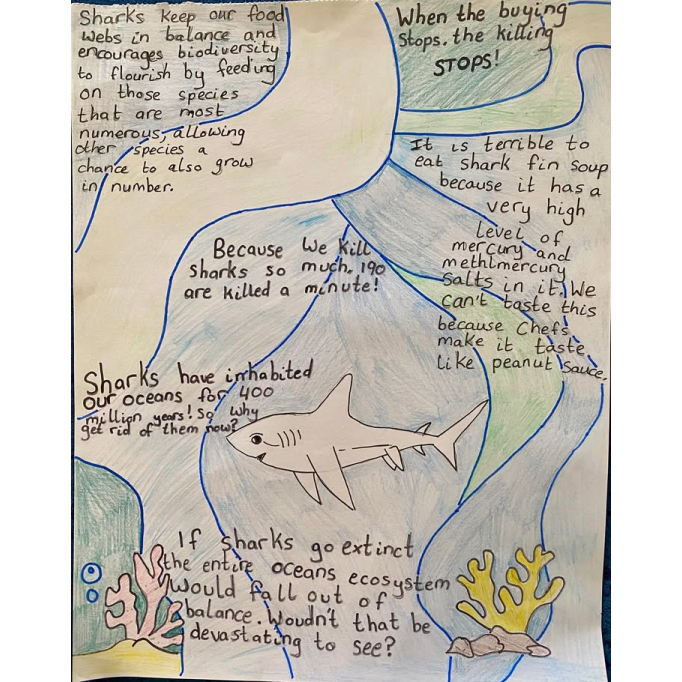 Sharks keep our food
webs in balance and
encourages biodiversity
to flourish by feeding
on those species
that are most
numerous, allowing
other species a
chance to also grow
in number.
When the buying
stops, the killing
STOPS!
It is terrible to
eat shark fin soup
because it has a
very high
level of
mercury and
methlmercury
salts in it. We
can't taste this
because Chefs
make it taste
like peanut sauce.
Because we kill
sharks so much, 190
are killed a minute!
Sharks have inhabited
our oceans for 400
million years! So why
get rid of them now?
If sharks go extinct
the entire oceans ecosystem
would fall out of
balance. Woudn't that be
devastating to see?